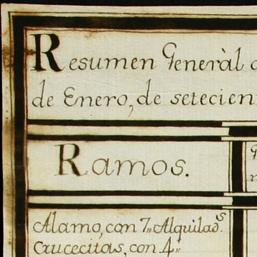 Resumen Generàl d
de Enero, de setecien
Ramos.
Alamo, con 7,, Alquilad.s
Crucecitas, con 4,,